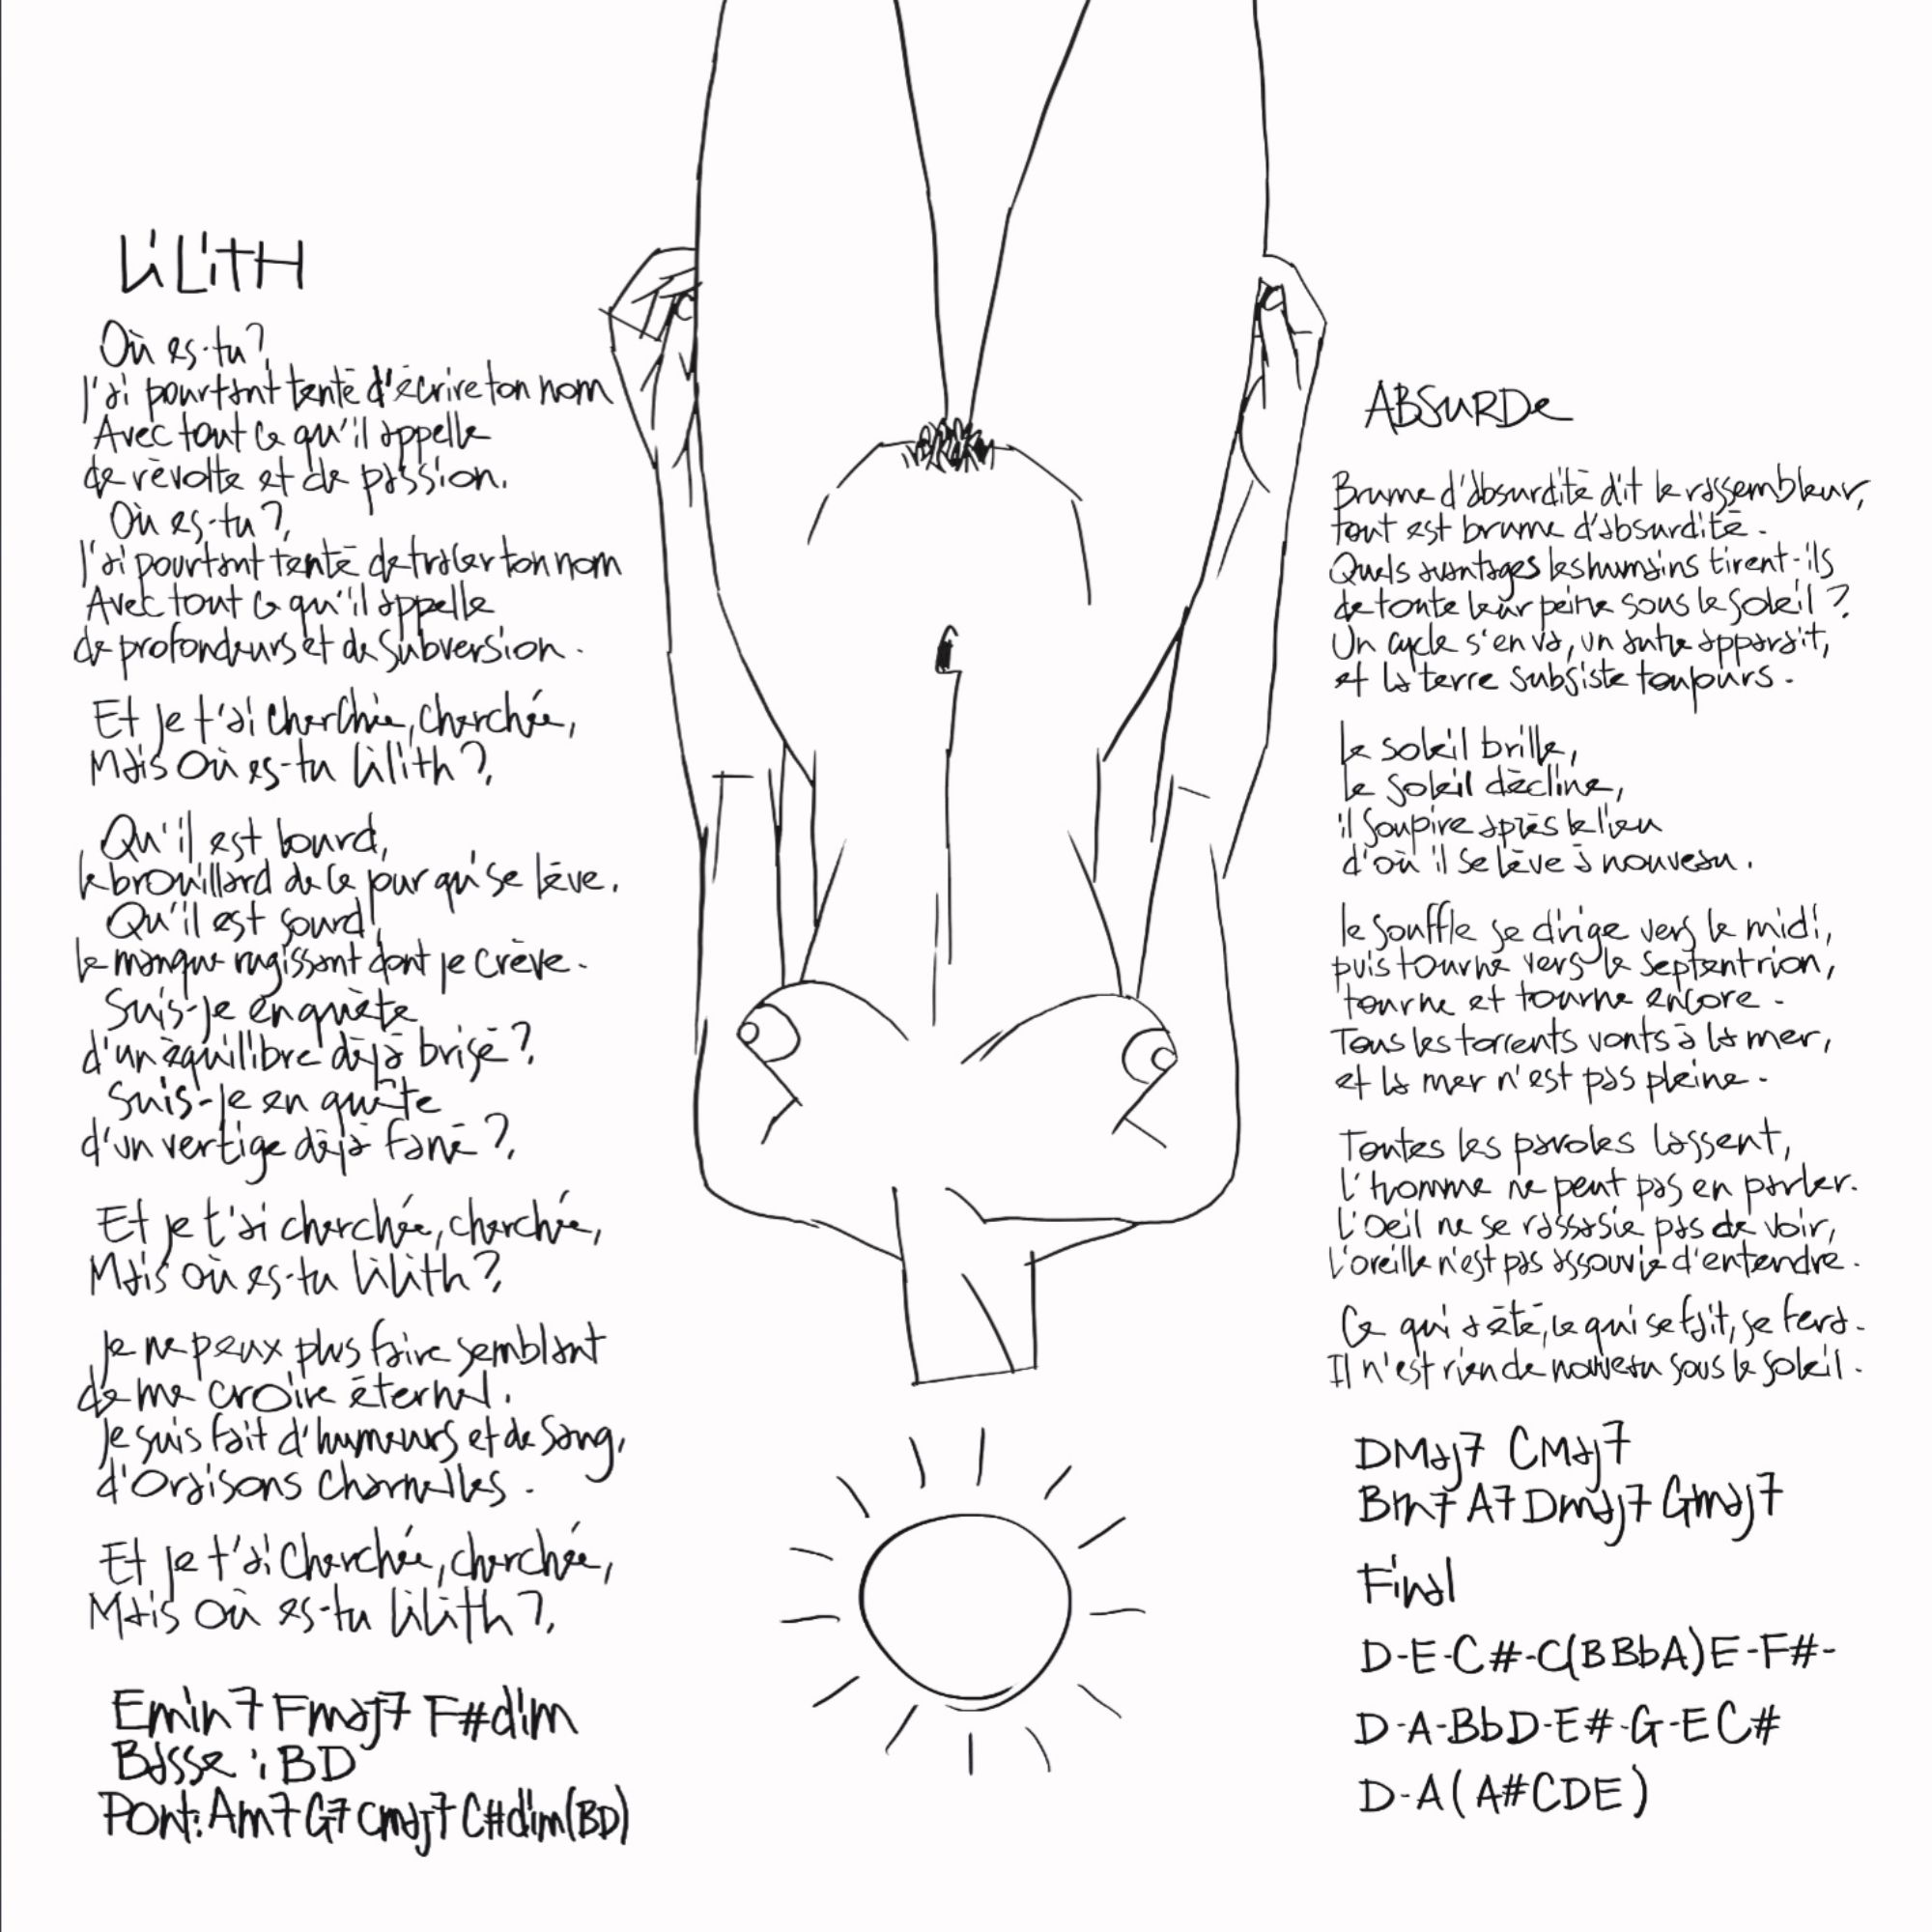 LILITH
Où es-tu?
J'ai pourtant tenté d'écrire ton nom
Avec tout ce qu'il appelle
de révolte et de passion.
Où es-tu?
J'ai pourtant tenté de tracer ton nom
Avec tout ce qu'il appelle
de profondeurs et de subversion.
Et je t'ai cherchée, cherchée,
Mais où es-tu Lilith?
Qu'il est lourd,
le brouillard de ce jour qui se lève.
Qu'il est sourd,
le manque rugissant dont je crève.
Suis-je en quête
d'un équilibre déjà brisé?
Suis-je en quête
d'un vertige déjà fané?
Et je t'ai cherchée, cherchée,
Mais où es-tu Lilith?
Je ne peux plus faire semblant
de me croire éternel.
Je suis fait d'humeurs et de sang,
d'Oraisons charnelles.
Et je t'ai cherchée, cherchée,
Mais où es-tu Lilith?
Emin7 Fmaj7 F#dim
Basse : BD
Pont: Am7 G7 Cmaj7 C#dim(BD)
ABSURDe
Brume d'absurdité dit le rassembleur,
tout est brume d'absurdité.
Quels avantages les humains tirent-ils
de toute leur peine sous le soleil?
Un cycle s'en va, un autre apparait,
et la terre subsiste toujours.
Le soleil brille,
Le soleil décline,
il soupire après le lieu
d'où il se lève à nouveau.
Le souffle se dirige vers le midi,
puis tourne vers le septentrion,
tourne et tourne encore.
Tous les torrents vonts à la mer,
et la mer n'est pas pleine.
Toutes les paroles lassent,
l'homme ne peut pas en parler.
L'oeil ne se rassasie pas de voir,
L'oreille n'est pas assouvie d'entendre.
Ce qui a été, ce qui se fait, se fera.
Il n'est rien de nouveau sous le soleil.
DMaj7 CMaj7
Bm7 A7 Dmaj7 Gmaj7
Final
D-E-C#-C(BBbA)E-F#-
D-A-BbD-E#-G-EC#
D-A(A#CDE)